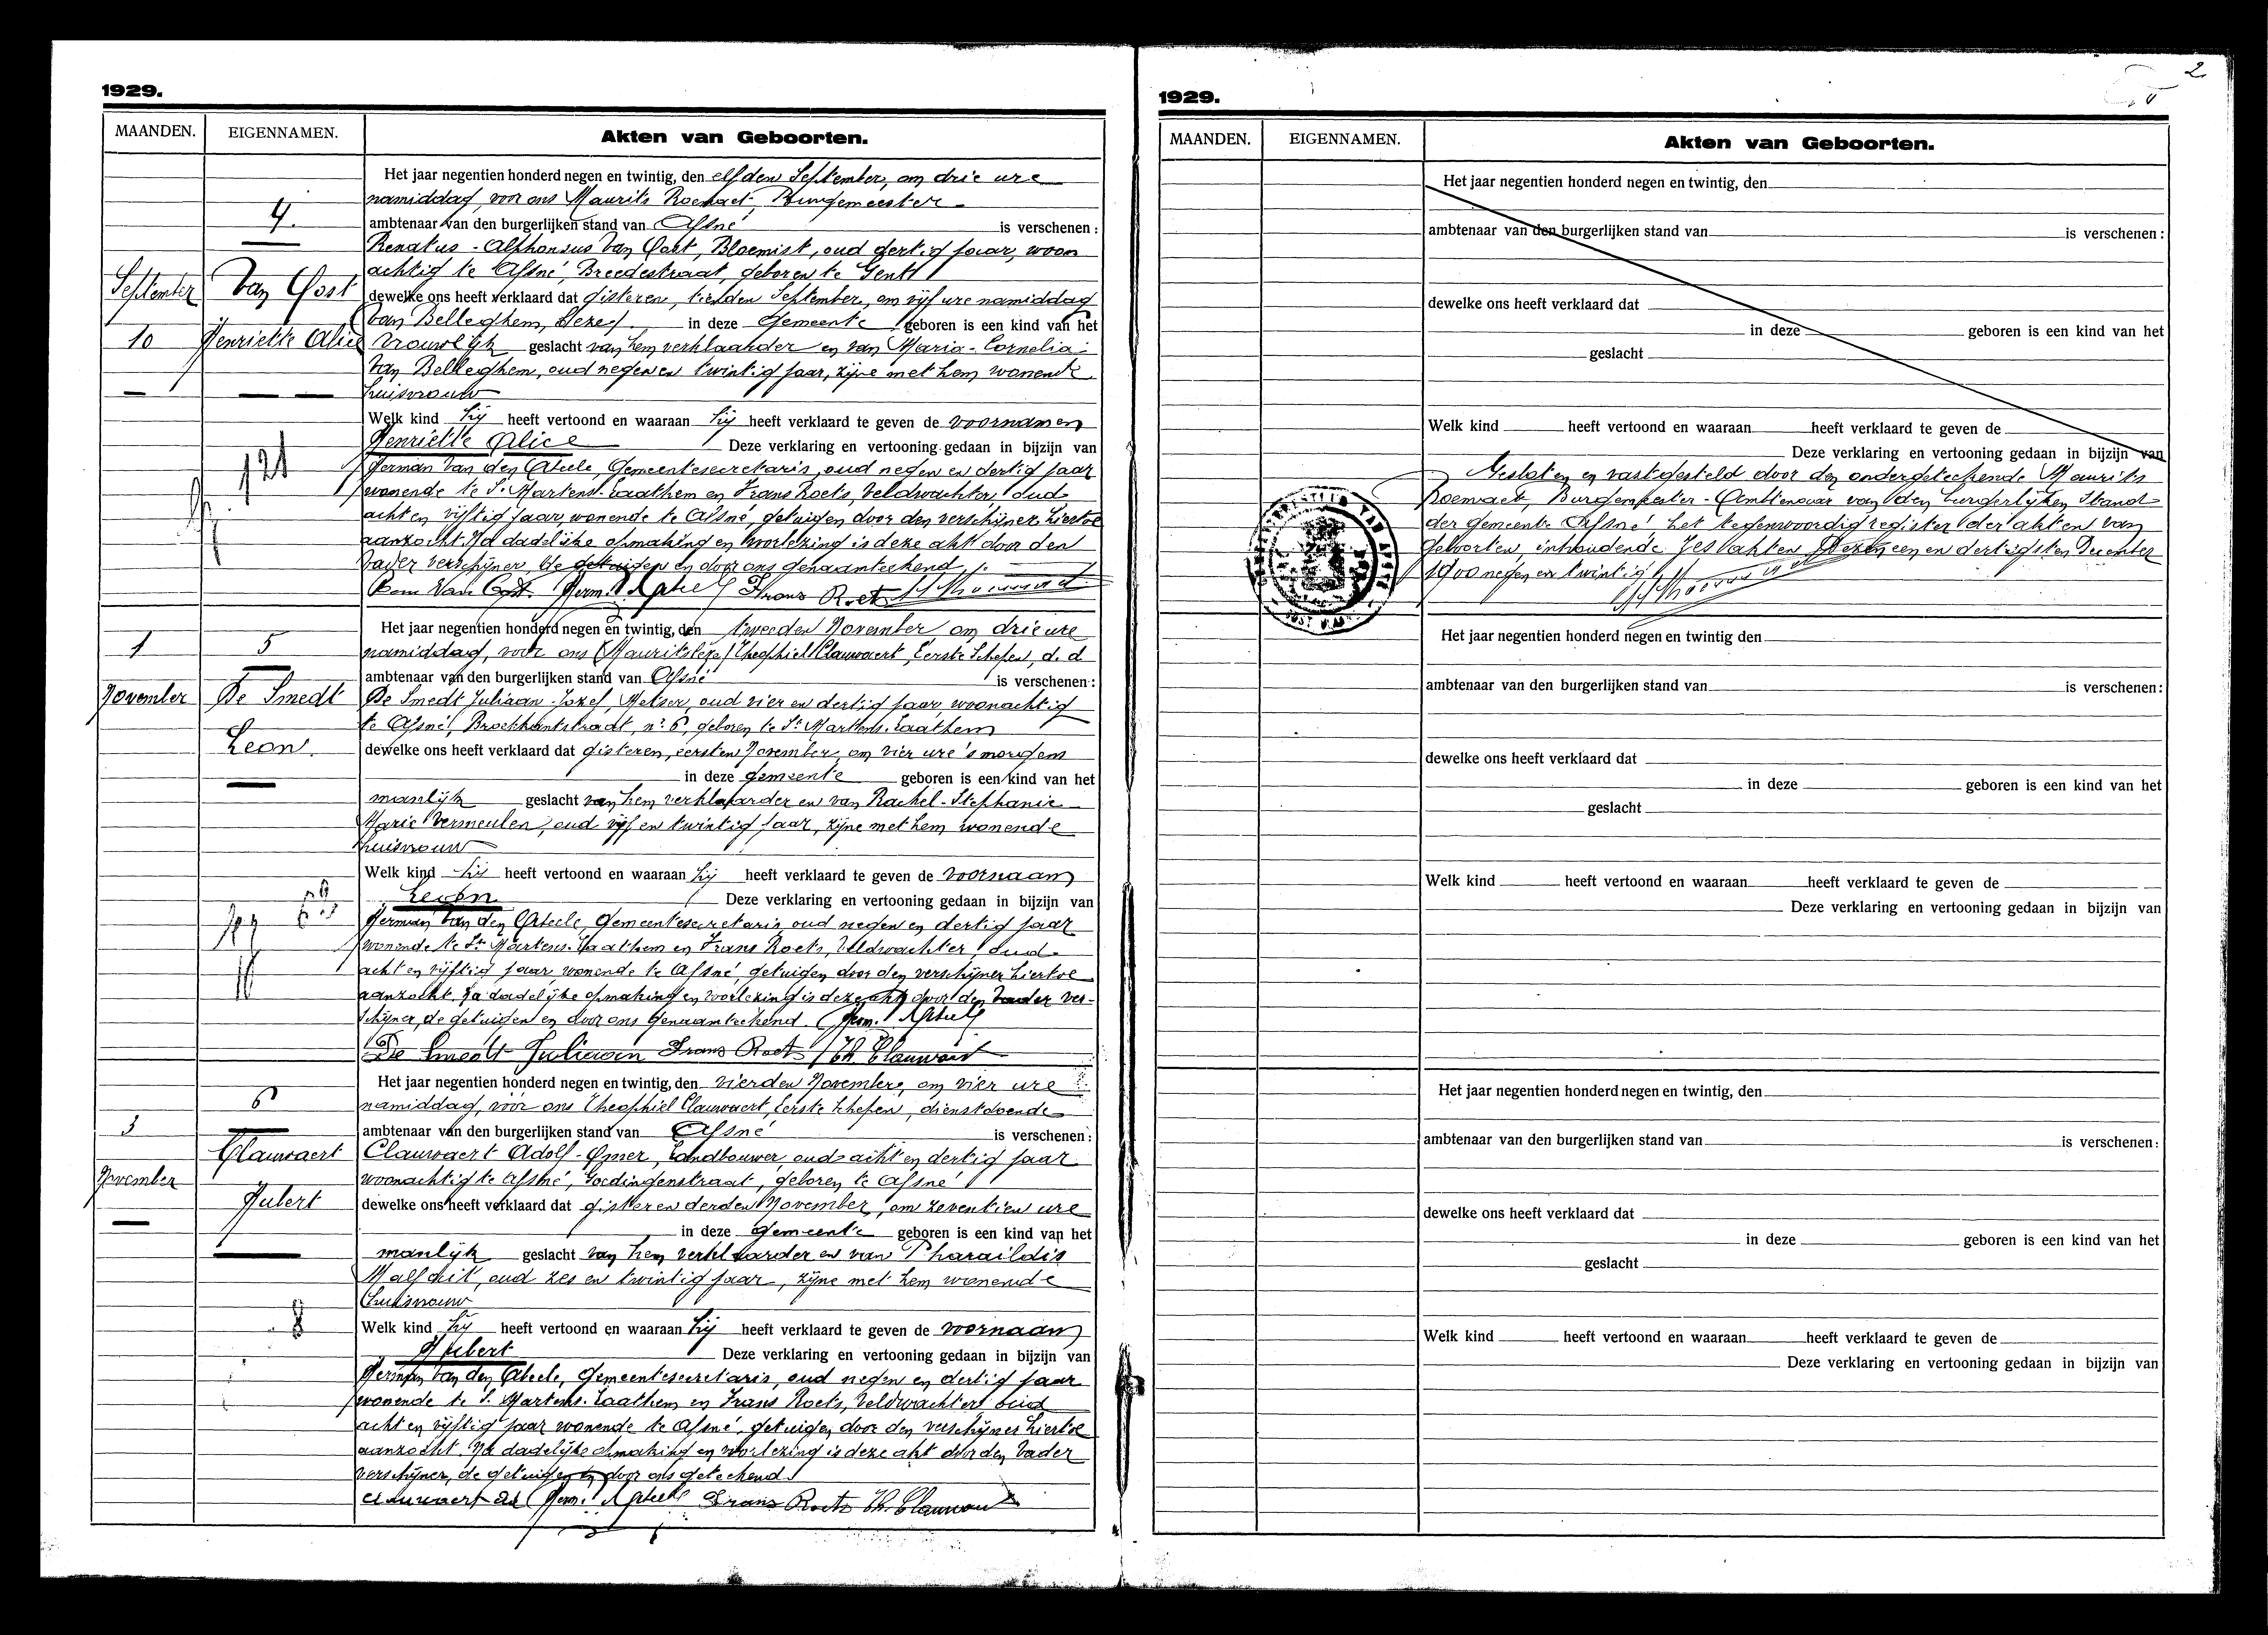 1929.
MAANDEN. EIGENNAMEN. Akten van Geboorten.
Het jaar negentien honderd negen en twintig, den elfden September, om drie ure
namiddag, voor ons Maurits Roemaet, Burgemeester
4.
ambtenaar van den burgerlijken stand van Afsné is verschenen:
Renatus-Alphonsus Van Oost, Bloemist, oud dertig jaar, woon
achtig te Afsné, Breedestraat, geboren te Gent
September Van Oost
dewelke ons heeft verklaard dat gisteren, tienden September, om vijf ure namiddag
in deze Gemeente geboren is een kind van het
10 Henriette Alice
vrouwelijk geslacht van hem verklaarder en van Maria-Cornelia
Van Belleghem, oud negen en twintig jaar, zijne met hem wonende
huisvrouw
Welk kind hij heeft vertoond en waaraan hij heeft verklaard te geven de voornamen
Henriette Alice Deze verklaring en vertooning gedaan in bijzijn van
Herman Van den Abeele, Gemeentesecretaris, oud negen en dertig jaar
wonende te St Martens-Laathem en Frans Roets, Veldwachter, oud
acht en vijftig jaar, wonende te Afsné, getuigen door den verschijner hiertoe
aanzocht. Na dadelijke opmaking en voorlezing is deze akt door den
Vader verschijner, de getuigen en door ons genaamteekend.
Van Oost Herm. V Abeel Frans Roets
Het jaar negentien honderd negen en twintig, den tweeden November om drie ure
1 5
namiddag, voor ons Theophiel Clauwaert, Eerste Schepen, d.d.
ambtenaar van den burgerlijken stand van Afsné is verschenen:
November De Smedt
De Smedt Juliaan-Jozef, Metser, oud vier en dertig jaar, woonachtig
te Afsné, Broekkantstraat, nr 6, geboren te St Martens-Laathem
Leon.
dewelke ons heeft verklaard dat gisteren, eersten November, om vier ure 's morgens
in deze gemeente geboren is een kind van het
manlijk geslacht van hem verklaarder en van Rachel-Stephanie
Marie Vermeulen, oud vijf en twintig jaar, zijne met hem wonende
huisvrouw
Welk kind hij heeft vertoond en waaraan hij heeft verklaard te geven de voornaam
Leon Deze verklaring en vertooning gedaan in bijzijn van
Herman Van den Abeele, Gemeentesecretaris, oud negen en dertig jaar
wonende te St Martens-Laathem en Frans Roets, Veldwachter, oud
acht en vijftig jaar wonende te Afsné, getuigen door den verschijner hiertoe
aanzocht. Na dadelijke opmaking en voorlezing is deze akt door den Vader ver-
schijner, de getuigen en door ons genaamteekend. Herm. V Abeel
De Smedt Juliaan Frans Roets Th. Clauwaert
Het jaar negentien honderd negen en twintig, den vierden November, om vier ure
6
namiddag, voor ons Theophiel Clauwaert, Eerste Schepen, dienstdoende
3
ambtenaar van den burgerlijken stand van Afsné is verschenen:
Clauwaert
Clauwaert Adolf-Omer, Landbouwer, oud acht en dertig jaar
November
woonachtig te Afsné, Goedingenstraat, geboren te Afsné
Hubert
dewelke ons heeft verklaard dat gisteren derden November, om zeventien ure
in deze Gemeente geboren is een kind van het
manlijk geslacht van hem verklaarder en van Pharaildis
Malfait, oud zes en twintig jaar, zijne met hem wonende
huisvrouw
8
Welk kind hij heeft vertoond en waaraan hij heeft verklaard te geven de voornaam
Hubert Deze verklaring en vertooning gedaan in bijzijn van
Herman Van den Abeele, Gemeentesecretaris, oud negen en dertig jaar
wonende te St Martens-Laathem en Frans Roets, Veldwachter oud
acht en vijftig jaar wonende te Afsné, getuigen door den verschijner hiertoe
aanzocht. Na dadelijke opmaking en voorlezing is deze akt door den Vader
verschijner, de getuigen en door ons geteekend.
Clauwaert Ad Herm. V Abeele Frans Roets Th. Clauwaert
2
1929.
MAANDEN. EIGENNAMEN. Akten van Geboorten.
Het jaar negentien honderd negen en twintig, den
ambtenaar van den burgerlijken stand van is verschenen:
dewelke ons heeft verklaard dat
in deze geboren is een kind van het
geslacht
Welk kind heeft vertoond en waaraan heeft verklaard te geven de
Deze verklaring en vertooning gedaan in bijzijn van
Gesloten en vastgesteld door den ondergeteekende Maurits
Roemaet, Burgemeester-Ambtenaar van den burgerlijken Stand
der gemeente Afsné het tegenwoordig register der akten van
geboorten, inhoudende zes akten Dezen een en dertigsten December
1900 negen en twintig
Het jaar negentien honderd negen en twintig den
ambtenaar van den burgerlijken stand van is verschenen:
dewelke ons heeft verklaard dat
in deze geboren is een kind van het
geslacht
Welk kind heeft vertoond en waaraan heeft verklaard te geven de
Deze verklaring en vertooning gedaan in bijzijn van
Het jaar negentien honderd negen en twintig, den
ambtenaar van den burgerlijken stand van is verschenen:
dewelke ons heeft verklaard dat
in deze geboren is een kind van het
geslacht
Welk kind heeft vertoond en waaraan heeft verklaard te geven de
Deze verklaring en vertooning gedaan in bijzijn van